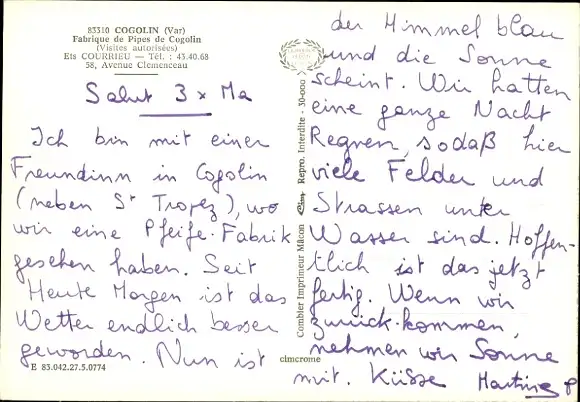 83310 COGOLIN (Var)
Fabrique de Pipes de Cogolin
(Visites autorisées)
Ets COURRIEU — Tél. : 43.40.68
58, Avenue Clemenceau
Salut 3 x Ma
Ich bin mit einer
Freundinn in Cogolin
(neben St Tropez), wo
wir eine Pfeife-Fabrik
gesehen haben. Seit
Heute Morgen ist das
Wetter endlich besser
geworden. Nun ist
E 83.042.27.5.0774
cimcrome
Combier Imprimeur Mâcon
Repro. Interdite - 30-000
der Himmel blau
und die Sonne
scheint. Wir hatten
eine ganze Nacht
Regnen, sodaß hier
viele Felder und
Strassen unter
Wasser sind. Hoffen-
tlich ist das jetzt
fertig. Wenn wir
zurück-kommen,
nehmen wir Sonne
mit. Küsse Martine P